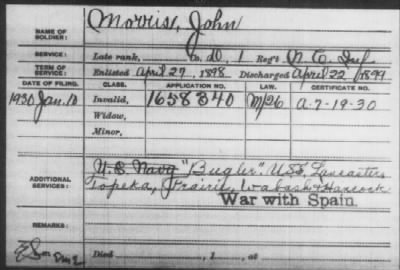 NAME OF SOLDIER: Morris, John
SERVICE: Late rank, Co. D, 1 Reg't N.C. Inf
TERM OF SERVICE: Enlisted April 27, 1898 Discharged April 22, 1899
DATE OF FILING. CLASS. APPLICATION NO. LAW. CERTIFICATE NO.
1930 Jan. 10 Invalid, 1658340 A-7-19-30
Widow,
Minor,
ADDITIONAL SERVICES: U.S. Navy "Bugler". USS. Lancaster
Topeka, Prairie, Wabash & Hancock
War with Spain.
REMARKS:
Died , 1 , at